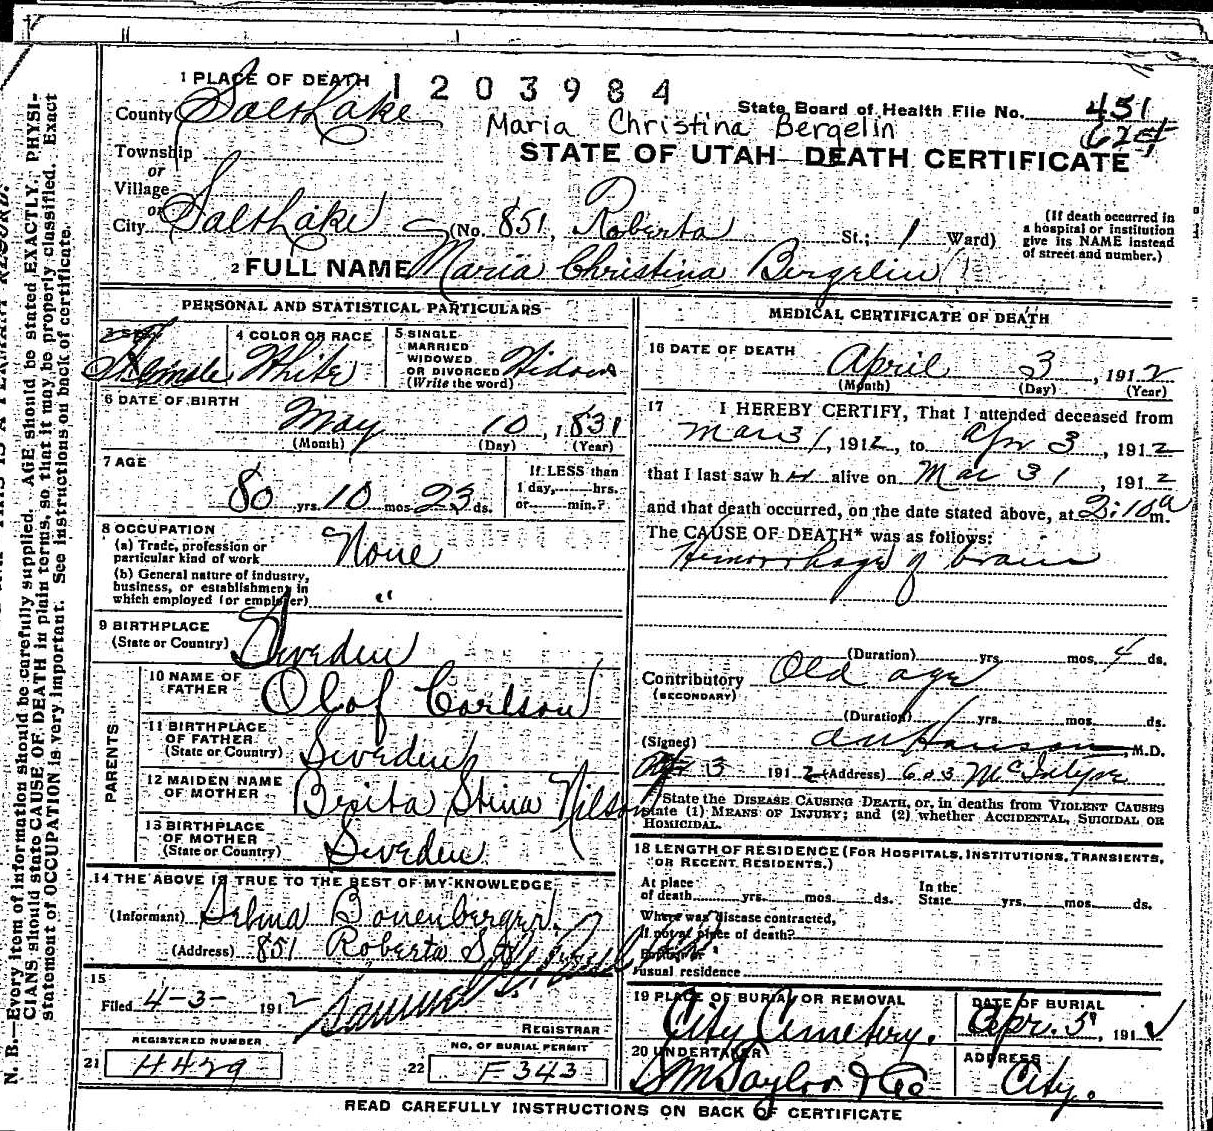 1 PLACE OF DEATH 1203984
County Salt Lake
State Board of Health File No. 451
Maria Christina Bergelin
Township
or
Village
or
City Salt Lake (No. 851, Roberta St.; 1 Ward)
STATE OF UTAH—DEATH CERTIFICATE
(If death occurred in
a hospital or institution
give its NAME instead
of street and number.)
2 FULL NAME Maria Christina Bergelin
PERSONAL AND STATISTICAL PARTICULARS
3 SEX
Female
4 COLOR OR RACE
White
5 SINGLE
MARRIED
WIDOWED
OR DIVORCED
(Write the word)
Widow
6 DATE OF BIRTH
May 10, 1831
(Month) (Day) (Year)
7 AGE
80 yrs. 10 mos 23 ds.
If LESS than
1 day, hrs.
or min.?
8 OCCUPATION
(a) Trade, profession or
particular kind of work None
(b) General nature of industry,
business, or establishment in
which employed (or employer) "
9 BIRTHPLACE
(State or Country) Sweden
PARENTS
10 NAME OF
FATHER Olof Carlson
11 BIRTHPLACE
OF FATHER
(State or Country) Sweden
12 MAIDEN NAME
OF MOTHER Brita Stina Nilson
13 BIRTHPLACE
OF MOTHER
(State or Country) Sweden
14 THE ABOVE IS TRUE TO THE BEST OF MY KNOWLEDGE
(Informant) Selma Bonenberger
(Address) 851 Roberta St
15
Filed 4-3- 1912
REGISTRAR
REGISTERED NUMBER
21 H429
NO. OF BURIAL PERMIT
22 F343
MEDICAL CERTIFICATE OF DEATH
16 DATE OF DEATH
April 3, 1912
(Month) (Day) (Year)
17 I HEREBY CERTIFY, That I attended deceased from
Mar 31, 1912, to Apr 3, 1912
that I last saw h alive on Mar 31, 1912
and that death occurred, on the date stated above, at 2:10 a m.
The CAUSE OF DEATH* was as follows:
Hemorrhage of brain
(Duration) yrs. mos. 4 ds.
Contributory Old age
(SECONDARY)
(Duration) yrs. mos. ds.
(Signed) Hanson, M.D.
Apr 3 1912 (Address) 603 McIntyre
*State the DISEASE CAUSING DEATH, or, in deaths from VIOLENT CAUSES
state (1) MEANS OF INJURY; and (2) whether ACCIDENTAL, SUICIDAL OR
HOMICIDAL.
18 LENGTH OF RESIDENCE (FOR HOSPITALS, INSTITUTIONS, TRANSIENTS,
OR RECENT RESIDENTS.)
At place
of death yrs. mos. ds.
In the
State yrs. mos. ds.
Where was disease contracted,
If not at place of death?
Former or
usual residence
19 PLACE OF BURIAL OR REMOVAL
City Cemetery.
DATE OF BURIAL
Apr. 5, 1912
20 UNDERTAKER
S M Taylor & Co
ADDRESS
City.
READ CAREFULLY INSTRUCTIONS ON BACK OF CERTIFICATE
N. B.—Every item of information should be carefully supplied. AGE should be stated EXACTLY. PHYSI-
CIANS should state CAUSE OF DEATH in plain terms, so that it may be properly classified. Exact
statement of OCCUPATION is very important. See instructions on back of certificate.